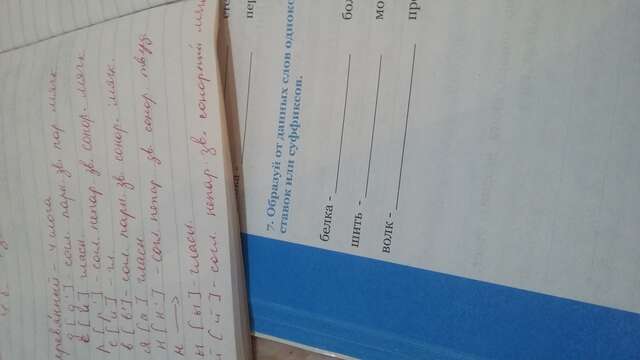 7. Образуй от данных слов однок
ставок или суффиксов.
белка -
шить -
волк -
бол
мо
пр
пер
- 4 слога
[д'] согл. парн. зв. пар. мягк
[и] гласн.
р [р'] - согл. непар. зв. сонор. мягк
е [и] - гл.
в [в'] согл. парн. зв. сонор. мягк.
я [а] гласн.
н [н] - согл. непар. зв. сонор твёрд
н →
ы [ы] - гласн.
й [й'] - согл. непар. зв. сонорный мяг